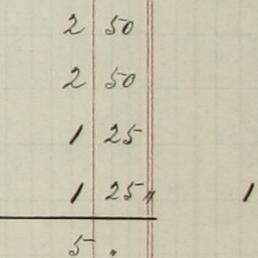 2 50
2 50
1 25
1 25 " 1
5 "